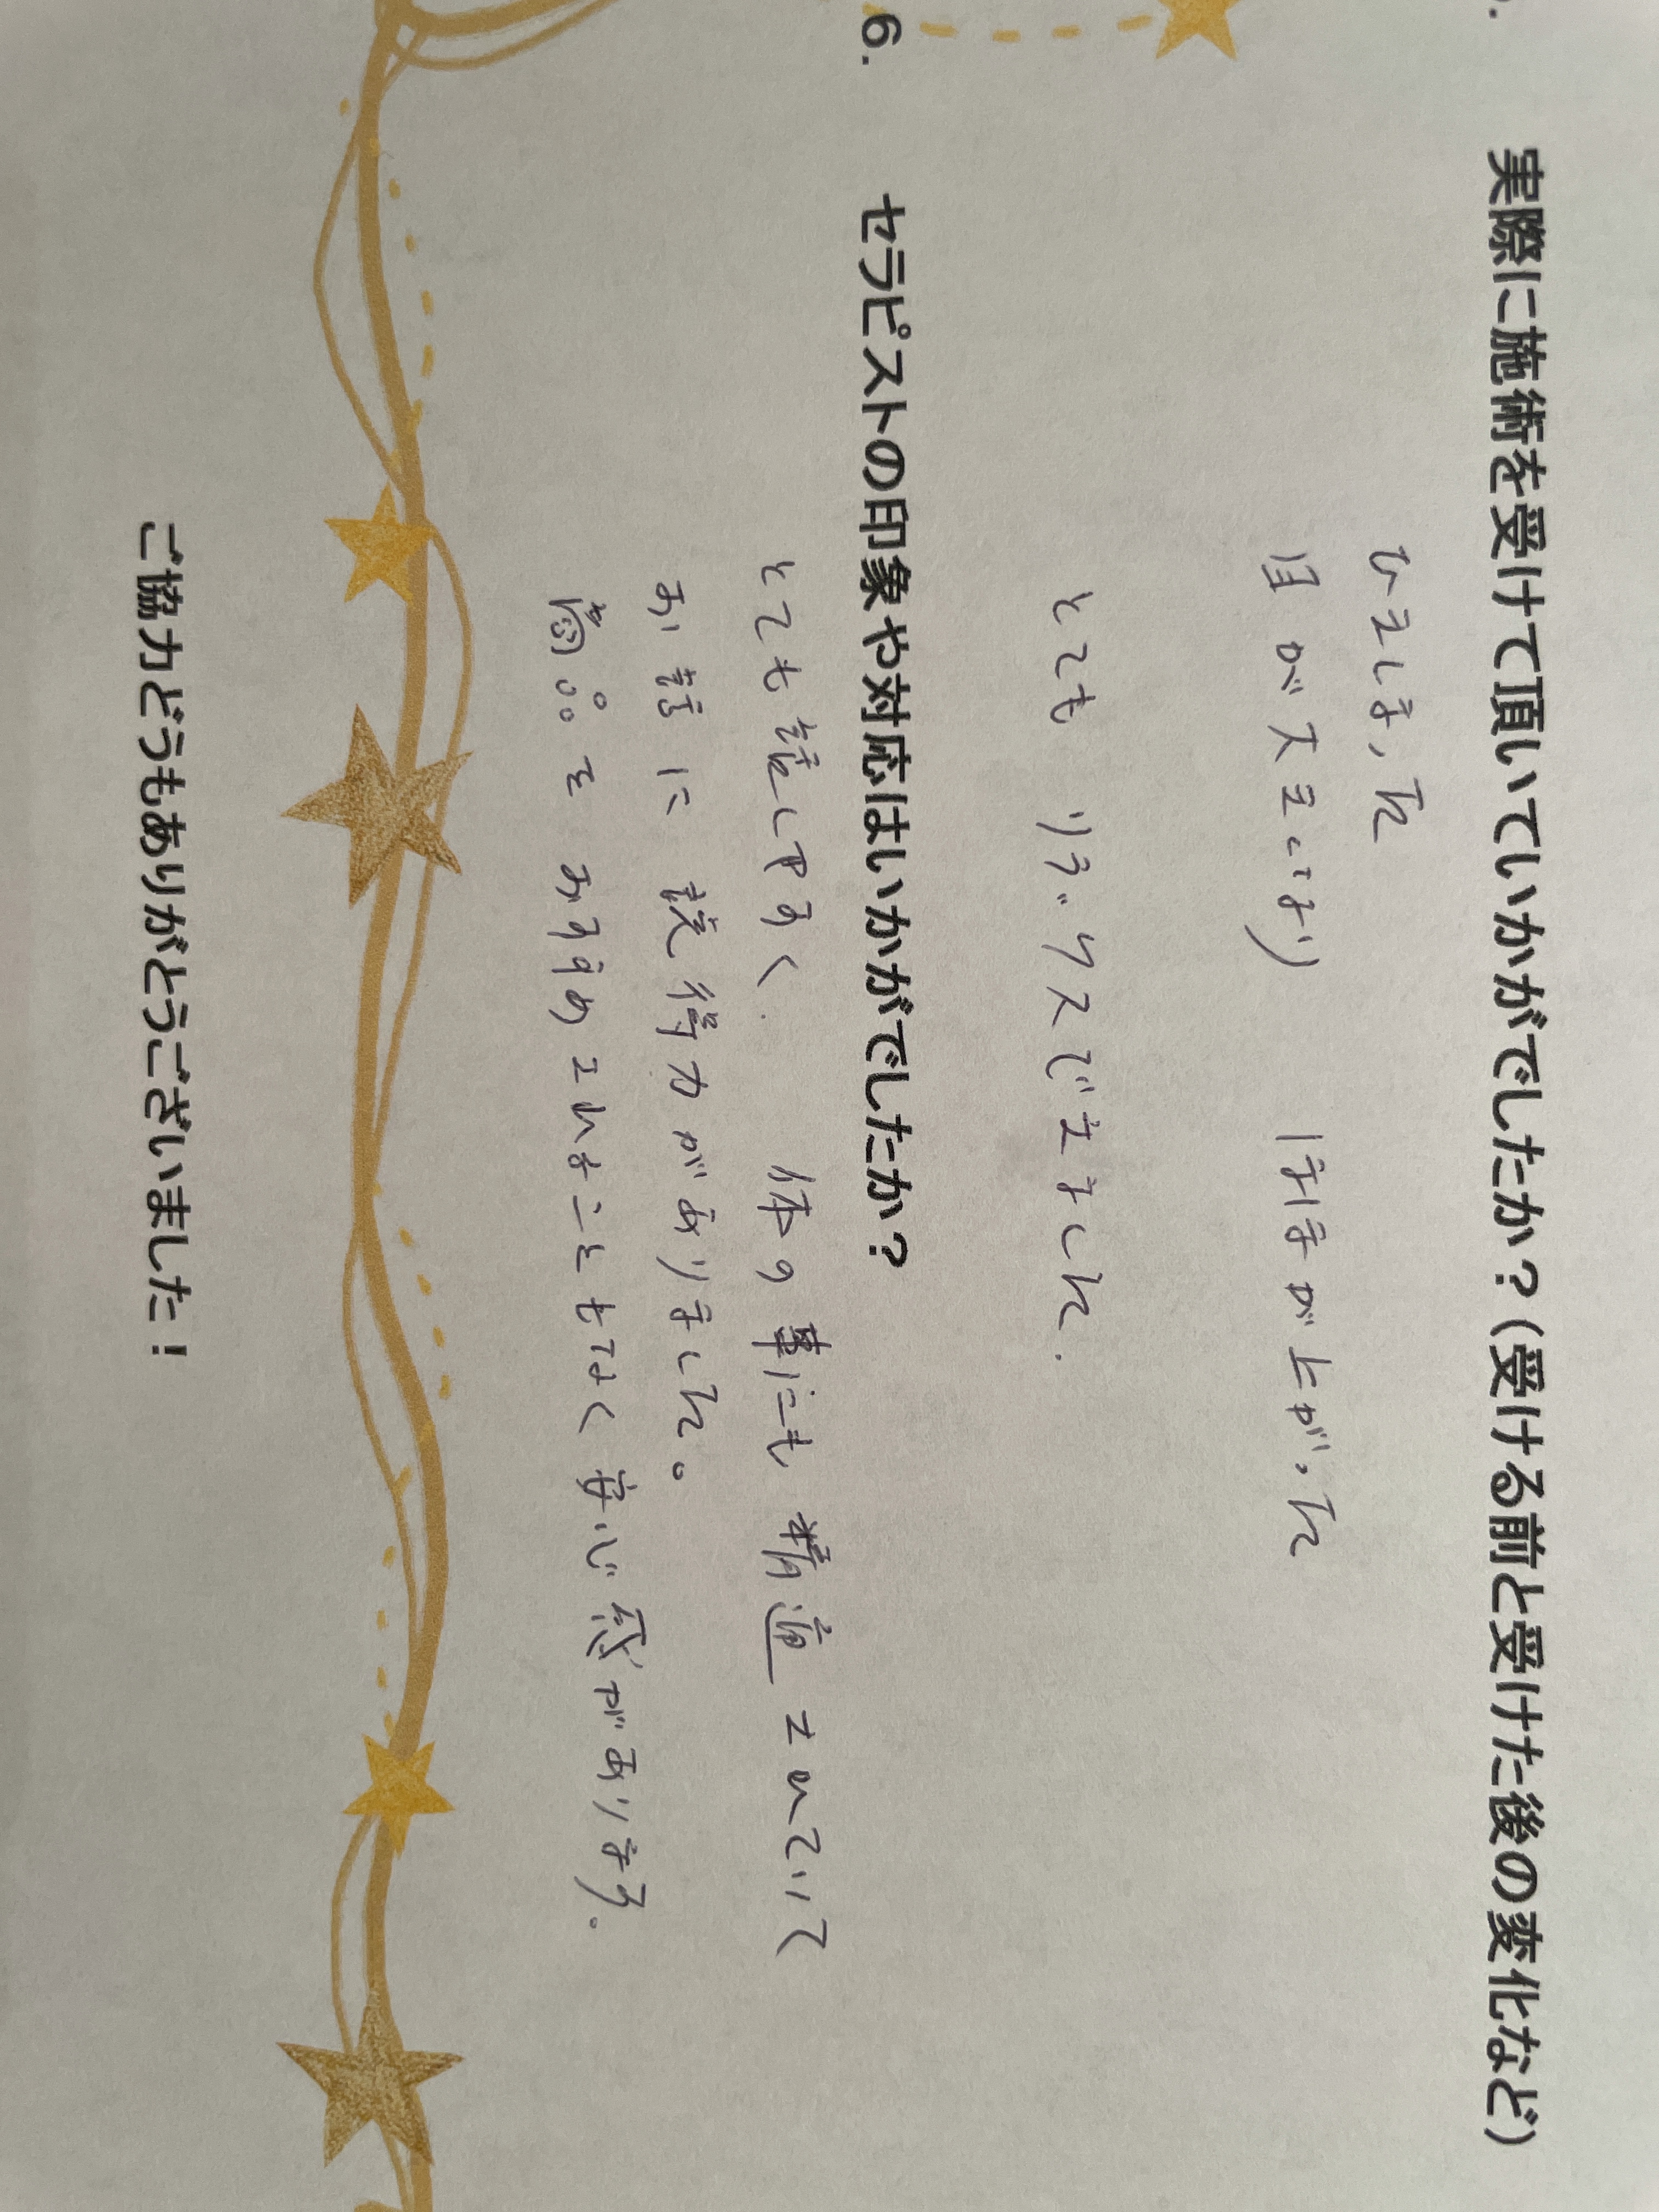 実際に施術を受けて頂いていかがでしたか？(受ける前と受けた後の変化など)
ひきしまった
目が大きくなり ほほが上がった
とても リラックスできました.
6. セラピストの印象や対応はいかがでしたか？
とても話しやすく. 体の事にも精通されていて
お話に説得力がありました。
商品をおすすめされることもなく安心感があります.
ご協力どうもありがとうございました！